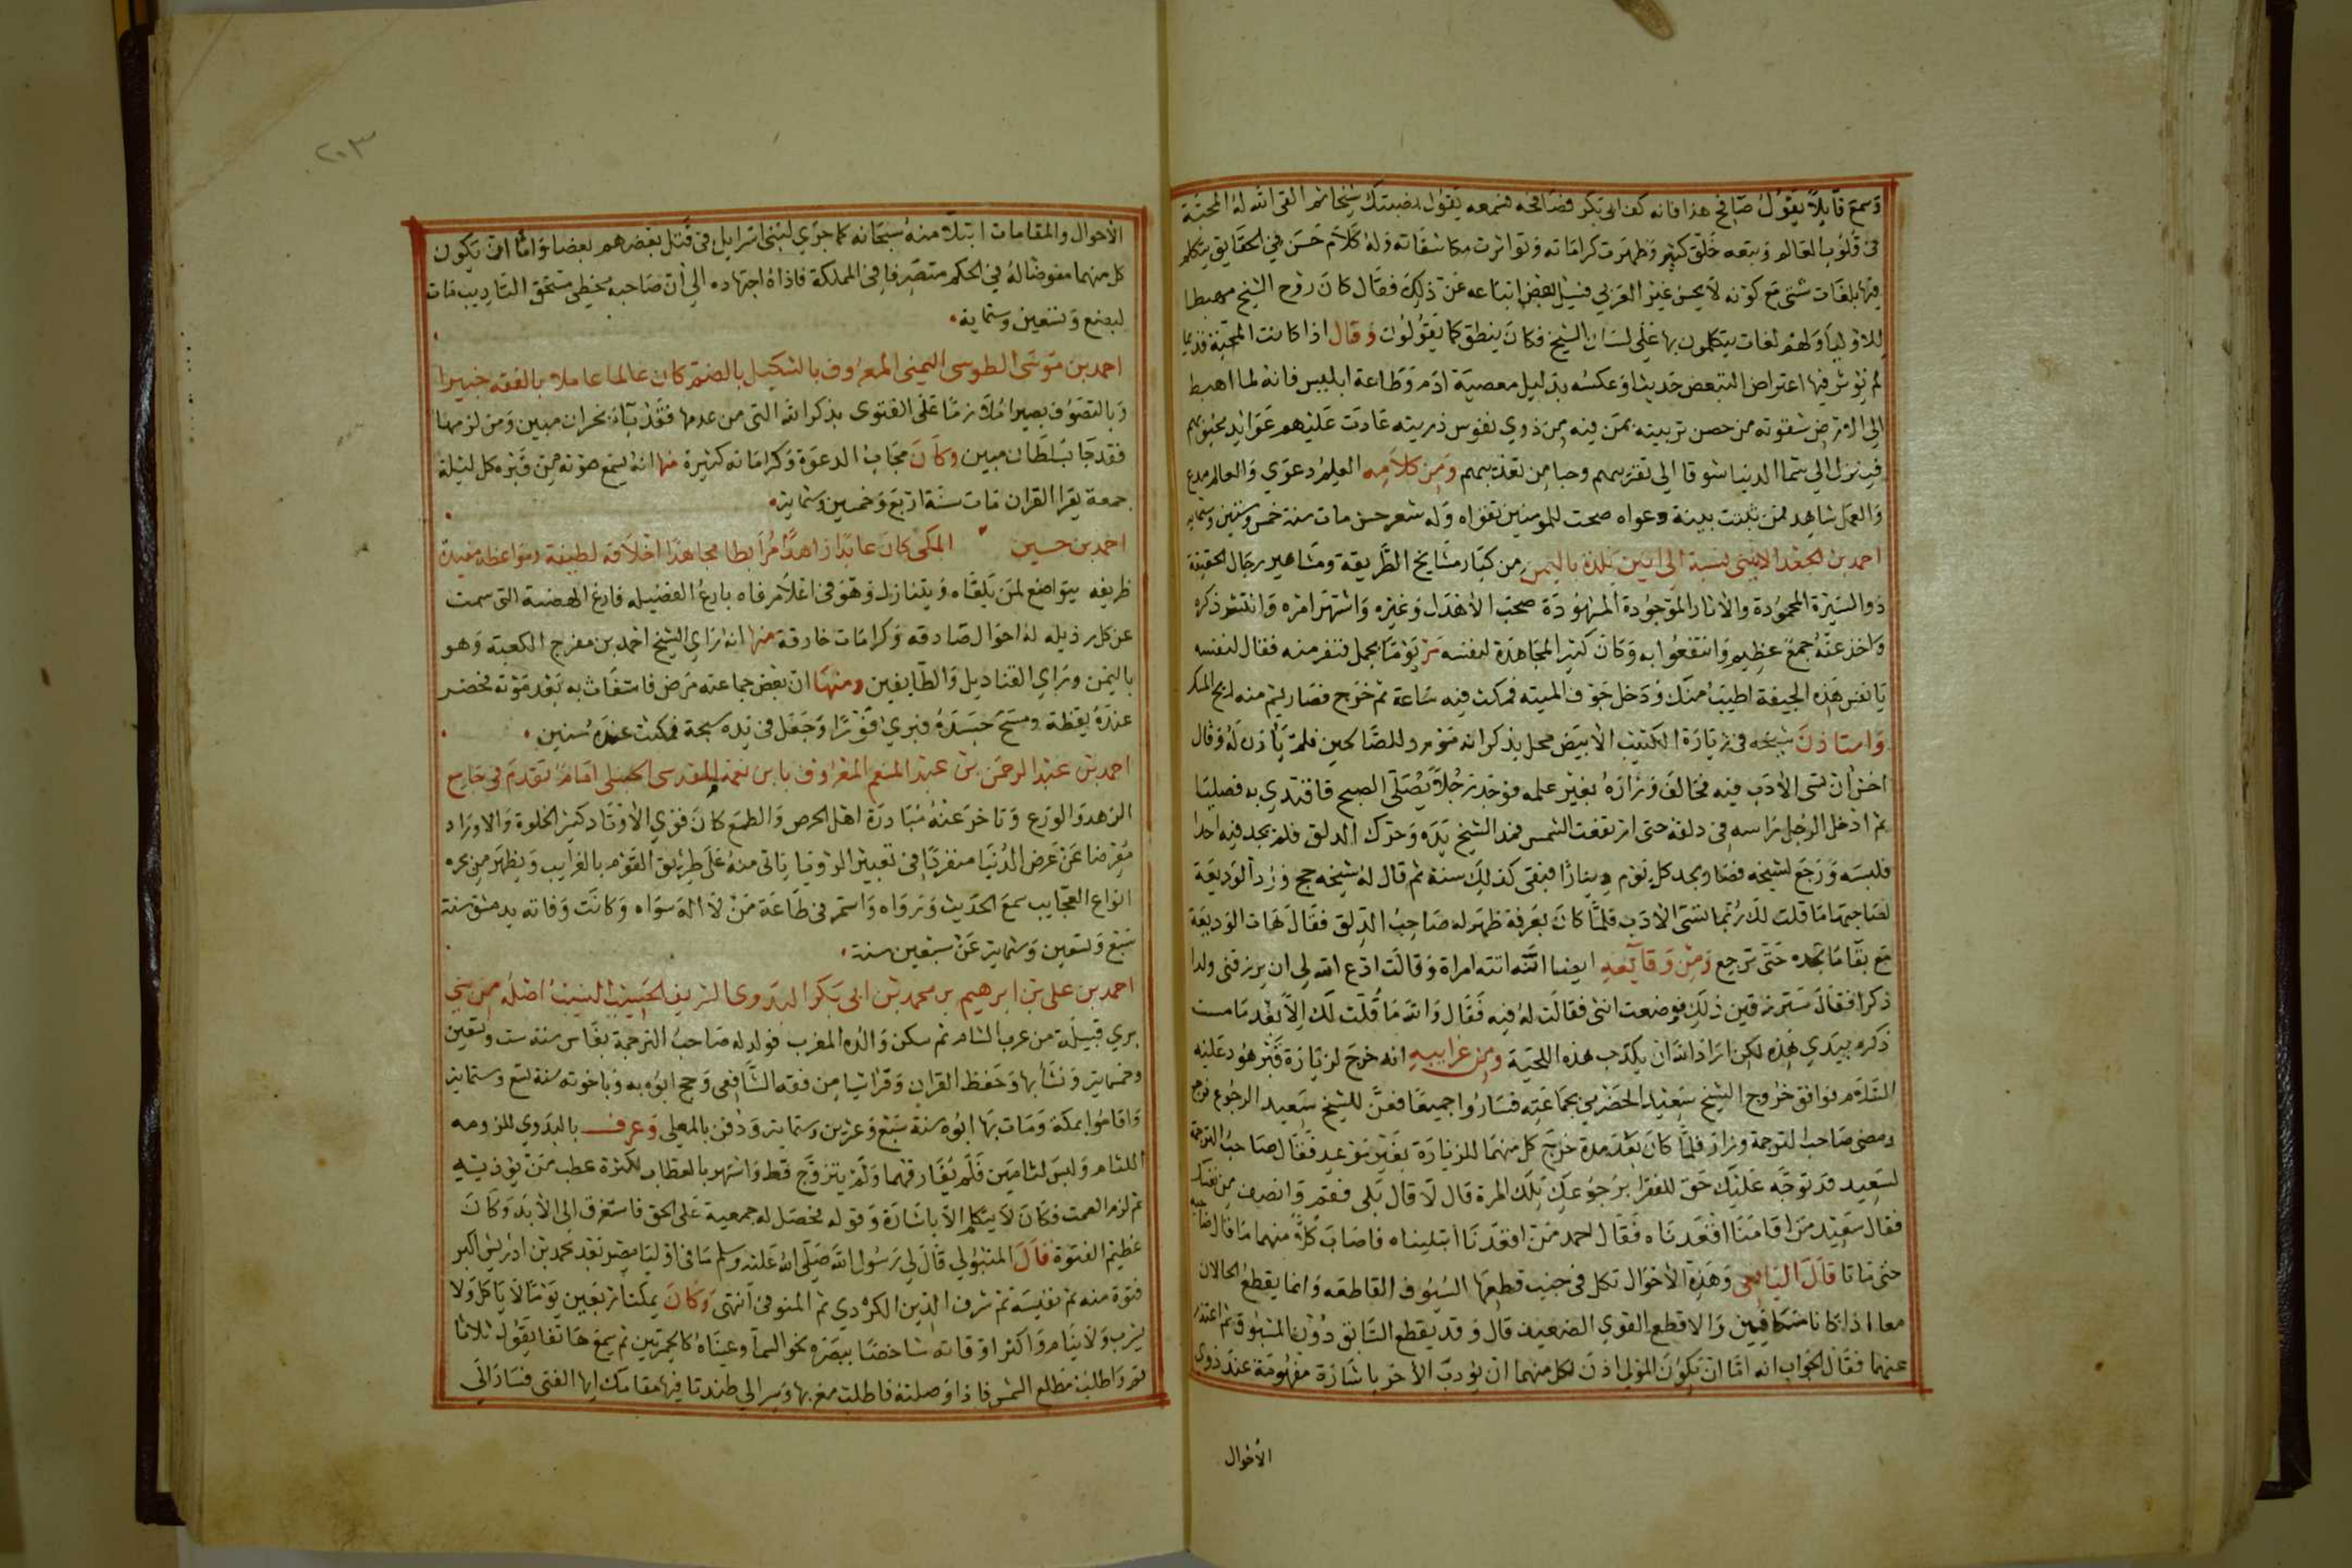 وسمع قايلا يقول صافح هذا فانه كف ابى بكر فصافحه فسمعه يقول القى الله له المحبة
فى قلوب العالم وتبعه خلق كثير وظهرت كراماته وتواترت مكاشفاته وله كلام حسن في الحقايق يتكلم
فيها بلغات شتى مع كونه لا يحسن غير العربي فسيل بعض اتباعه عن ذلك فقال كان روح الشيخ مهبطا
للاوليا ولهم لغات يتكلمون بها على لسان الشيخ فكان ينطق كما يقولون وقال اذا كانت المحبة قديما
لم يوثر فيها اعتراض البعض حديثا وعكسه بدليل معصية ادم وطاعة ابليس فانه لما اهبط
الى الارض شقوته من حصن تربيته بمن فيه من ذوي نفوس ذريته عادت عليهم عوايد
فينزل الى سما الدنيا شوقا الى تقربهم وحبا من تعذبهم ومن كلامه العلم دعوي والعالم مدع
والعمل شاهد فمن ثبتت بينة دعواه صحت للمومنين تقواه وله شعر حسن مات سنة خمس وستين وستماية
احمد بن الجعد الابينى نسبة الى ابين بلدة باليمن من كبار مشايخ الطريقة ومشاهير رجال الحقيقة
ذو السيرة المحمودة والاثار الموجودة المشهودة صحب الاهدل وغيره واشتهر امره وانتشر ذكره
واخذ عنه جمع عظيم وانتفعوا به وكان كثير المجاهدة لنفسه مر يوما بجمل فنفر منه فقال لنفسه
يا نفس هذه الجيفة اطيب منك ودخل جوف الميتة فمكث فيه ساعة ثم خرج فصار يشم منه ريح المسك
واستاذن شيخه فى زيارة الكثيب الابيض محل يذكر انه مورد للصالحين فلم ياذن له وقال
اخش ان تسى الادب فيه فخالف وزاره بغير علمه فوجد رجلا يصلى الصبح فاقتدي به فصليا
ثم ادخل الرجل راسه فى دلقه حتى ارتفعت الشمس فمد الشيخ يده وحرك الدلق فلم يجد فيه احدا
فلبسه ورجع لشيخه فصار يجد كل يوم دينارا فبقى كذلك سنة ثم قال له شيخه حج ورد الوديعة
لصاحبها ما قلت لك ربما تسى الادب فلما كان بعرفة ظهر له صاحب الدلق فقال هات الوديعة
مع بقا ما تجده حتى ترجع ومن وقايعه ايضا انه اتته امراة وقالت ادع الله لى ان يرزقنى ولدا
ذكرا فقال سترزقين ذلك فوضعت انثى فقالت له فيه فقال والله ما قلت لك الا بعد ما مست
ذكره بيدي هذه لكن اراد الله ان يكذب هذه اللحية ومن غرايبه انه خرج لزيارة قبر هود عليه
السلام فوافق خروج الشيخ سعيد الحضرمي بجماعته فساروا جميعا فعن للشيخ سعيد الرجوع فرجع
ومضى صاحب الترجمة وزار فلما كان بعد مدة خرج كل منهما للزيارة بغير موعد فقال صاحب الترجمة
لسعيد قد توجه عليك حق للفقرا برجوعك تلك المرة قال لا قال بلى فقم وانصف من نفسك
فقال سعيد من اقامنا اقعدناه فقال احمد من اقعدنا ابتليناه فاصاب كلا منهما ما قال صاحبه
حتى ماتا قال اليافعى وهذه الاحوال تكل فى جنب قطعها السيوف القاطعه وانما يقطع الحالان
معا اذا كانا متكافيين والا قطع القوي الضعيف قال وقد يقطع السابق دون المسبوق ثم اعتذر
عنهما فقال الجواب انه اما ان يكون المولى اذن لكل منهما ان يودب الاخر باشارة مفهومة عند ذوى
الاحوال
٢٠٣
الاحوال والمقامات ابتلا منه سبحانه كما جري لبنى اسرايل فى قتل بعضهم بعضا واما ان يكون
كل منهما مفوضا له في الحكم متصرفا فى المملكة فاداه اجتهاده الى ان صاحبه مخطى مستحق التاديب مات
لبضع وتسعين وستماية
احمد بن موسى الطوسى اليمنى المعروف بالشكيل بالضم كان عالما عاملا بالفقه خبيرا
وبالتصوف بصيرا ملازما على الفتوى بذكر الله التى من عدمها فقد باء بخسران مبين ومن لزمها
فقد جا بسلطان مبين وكان مجاب الدعوة وكراماته كثيرة منها انه يسمع صوته من قبره كل ليلة
جمعة يقرا القران مات سنة اربع وخمسين وستماية
احمد بن حسين المكى كان عابدا زاهدا مرابطا مجاهدا اخلاقه لطيفة ومواعظه مفيدة
ظريفه يتواضع لمن يلقاه ويتنازل وهو فى اعلا مرقاه بارع الفضيله فارع الهضبة التى سمت
عن كل رذيله له احوال صادقه وكرامات خارقة منها انه راي الشيخ احمد بن مفرج الكعبة وهو
باليمن وراي القناديل والطايفين ومنها ان بعض جماعته مرض فاستغاث به بعد موته فحضر
عنده يقظة ومسح جسده فبري فورا وجعل فى يده سبحة فمكثت عنده سنين
احمد بن عبد الرحمن بن عبد المنعم المعروف بابن نعمة المقدسى الحنبلى امام تقدم فى جامع
الزهد والورع وتاخر عنه مبادرة اهل الحرص والطمع كان قوي الاوتاد كثير الخلوة والاوراد
معرضا عن عرض الدنيا منفردا فى تعبير الرويا ياتى منه على طريق القوم بالغرايب ويظهر من بحره
انواع العجايب سمع الحديث ورواه واستمر فى طاعة من لا اله سواه وكانت وفاته بدمشق سنة
سبع وتسعين وستماية عن سبعين سنة
احمد بن على بن ابرهيم بن محمد بن ابى بكر البدوى الشريف الحسيب النسيب اصله من بنى
بري قبيلة من عرب الشام ثم سكن والده المغرب فولد له صاحب الترجمة بفاس سنة ست وتسعين
وخمسماية ونشأ بها وحفظ القران وقرا شيا من فقه الشافعى وحج ابوه به وباخوته سنة تسع وستماية
واقاموا بمكة ومات بها ابوه سنة سبع وعشرين وستماية ودفن بالمعلى وعرف بالبدوي للزومه
اللثام ولبس لثامين فلم يفارقهما ولم يتزوج قط واشتهر بالعطاب لكثرة عطب من يوذيه
ثم لزم الصمت فكان لا يتكلم الا باشارة وقوله يحصل له جمعية على الحق فاستغرق الى الابد وكان
عظيم الفتوة قال المتبولي قال لي رسول الله صلى الله عليه وسلم ما فى اوليا مصر بعد محمد بن ادريس اكبر
فتوة منه ثم نفيسة ثم شرف الدين الكردي ثم المنوفى انتهى وكان يمكث اربعين يوما لا ياكل ولا
يشرب ولا ينام واكثر اوقاته شاخصا ببصره نحو السما وعيناه كالجمرتين ثم سمع هاتفا يقول ثلاثا
قم واطلب مطلع الشمس فاذا وصلته فاطلب مغربها وسر الى طندتا فيها مقامك ايها الفتى فسار الى